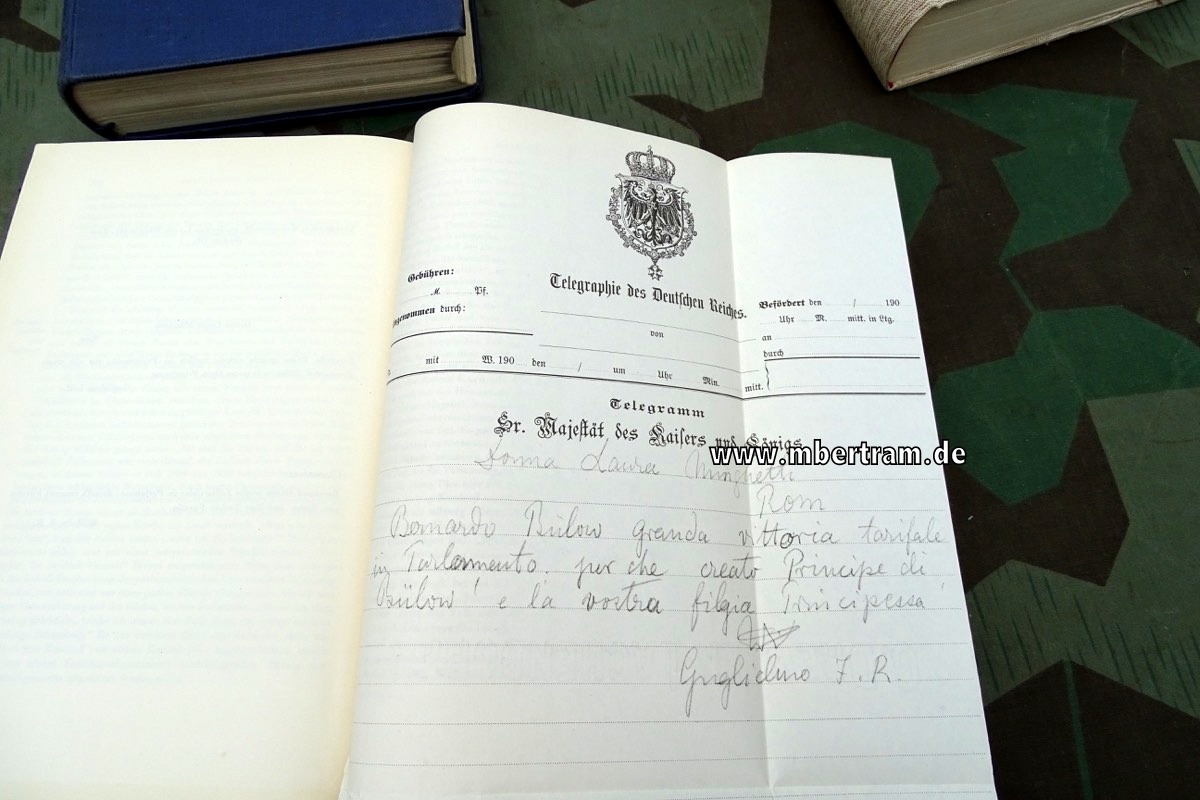 Gebühren:
M. Pf.
genommen durch:
Telegraphie des Deutschen Reiches.
von
Befördert den / 190
Uhr M. mitt. in Ltg.
an
durch
mit W. 190 den / um Uhr Min. mitt.
Telegramm
Sr. Majestät des Kaisers und Königs
www.mbertram.de
Donna Laura Minghetti
Rom
Bernardo Bülow granda vittoria tarifale
in Parlamento. per che creato Principe di
Bülow e la vostra filgia Principessa
Guglielmo I. R.